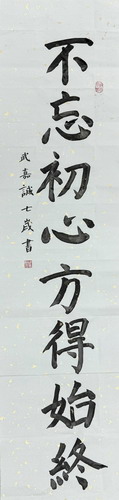 不忘初心方得始終
武嘉誠七歲書